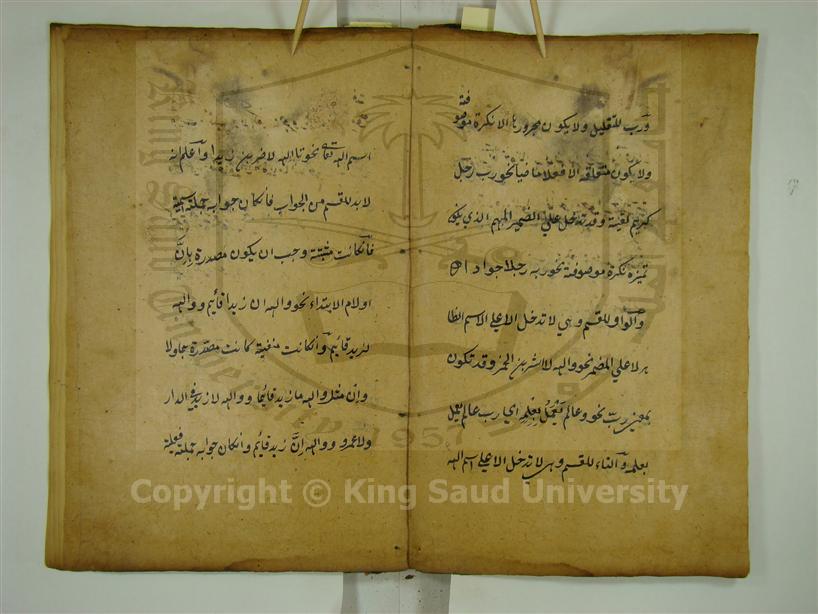 ورب للتقليل ولا يكون مجرورها الا نكرة موصوفة
ولا يكون متعلقه الا فعلا ماضيا نحو رب رجل
كريم لقيته وقد تدخل علي الضمير المبهم الذي يكون
تميزه نكرة موصوفة نحو ربه رجلا جوادا
والواو للقسم وهي لا تدخل الا علي الاسم الظا
هر لا علي المضمر نحو والله لا اشربن الخمر وقد تكون
بمعني ربّ نحو وعالم يعمل بعلمه اي رب عالم يعمل
بعلمه والتاء للقسم وهي لا تدخل الا علي اسم الله
اسم الله تعالي نحو تا الله لاضربن زيدا واعلم انه
لابد للقسم من الجواب فانكان جوابه جملة اسمية
فانكانت مثبتة وجب ان يكون مصدرة بانّ
اولام الابتداء نحو والله ان زيدا قائم ووالله
لزيد قائم وانكانت منفية كانت مصدرة بما ولا
وان مثل والله ما زيد قائما ووالله لا زيد في الدار
ولا عمرو ووالله انّ زيد قائم وانكان جوابه جملة فعلية
King Saud University
1957
Copyright © King Saud University